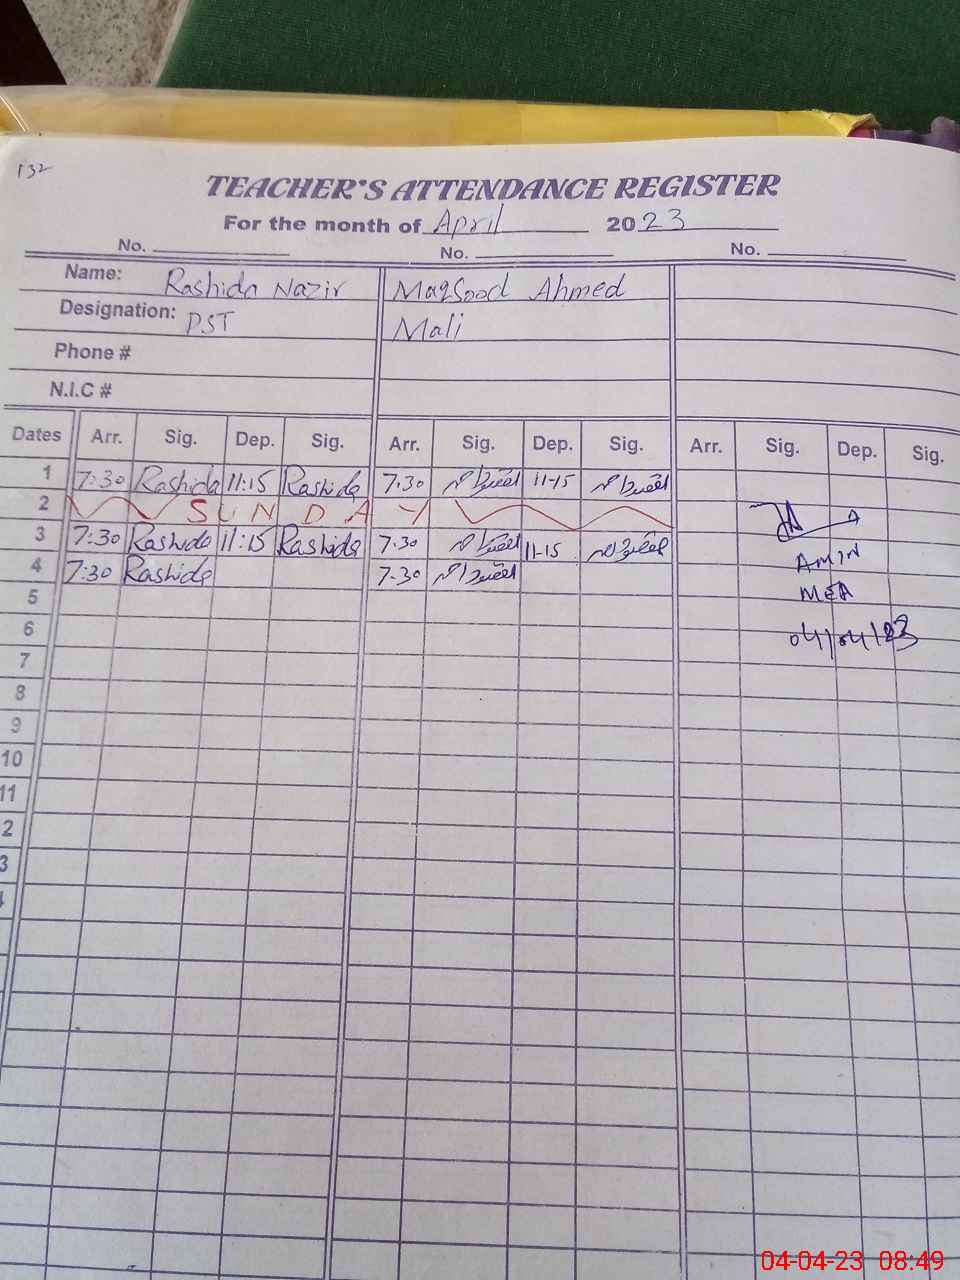 132
TEACHER'S ATTENDANCE REGISTER
For the month of April 2023
No. No. No.
Name: Rashida Nazir Maqsood Ahmed
Designation: PST Mali
Phone #
N.I.C #
Dates Arr. Sig. Dep. Sig. Arr. Sig. Dep. Sig. Arr. Sig. Dep. Sig.
1 7:30 Rashida 11:15 Rashida 7.30 11-15
2 SUNDAY
3 7:30 Rashida 11:15 Rashida 7.30 11-15
4 7:30 Rashida 7-30
AMIN
5
MEA
6
04/04/23
7
8
9
10
11
2
3
04-04-23 08:49